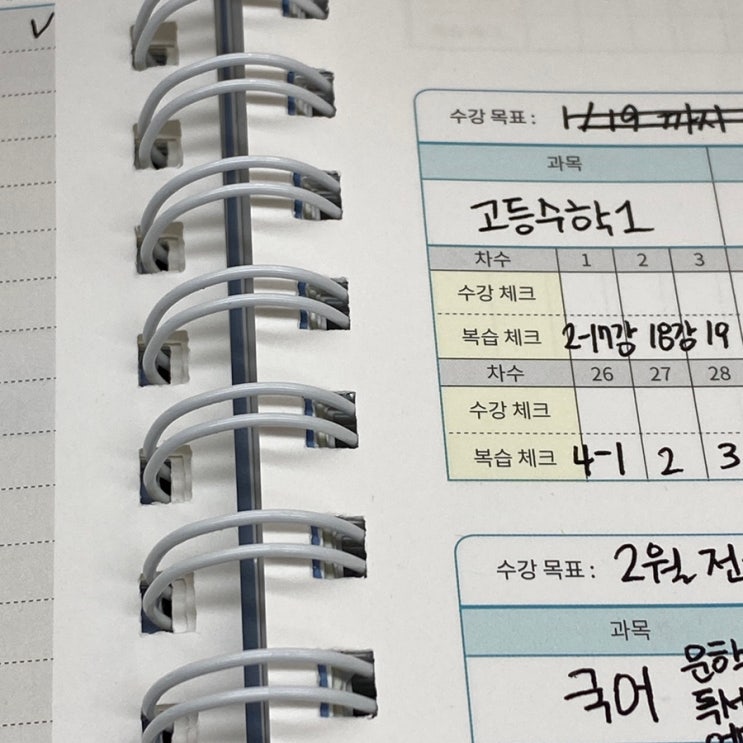 수강 목표 : 1/19 까지
과목
고등수학1
차수 1 2 3
수강 체크
복습 체크 2-17강 18강 19
차수 26 27 28
수강 체크
복습 체크 4-1 2 3
수강 목표 : 2월 전
과목
국어